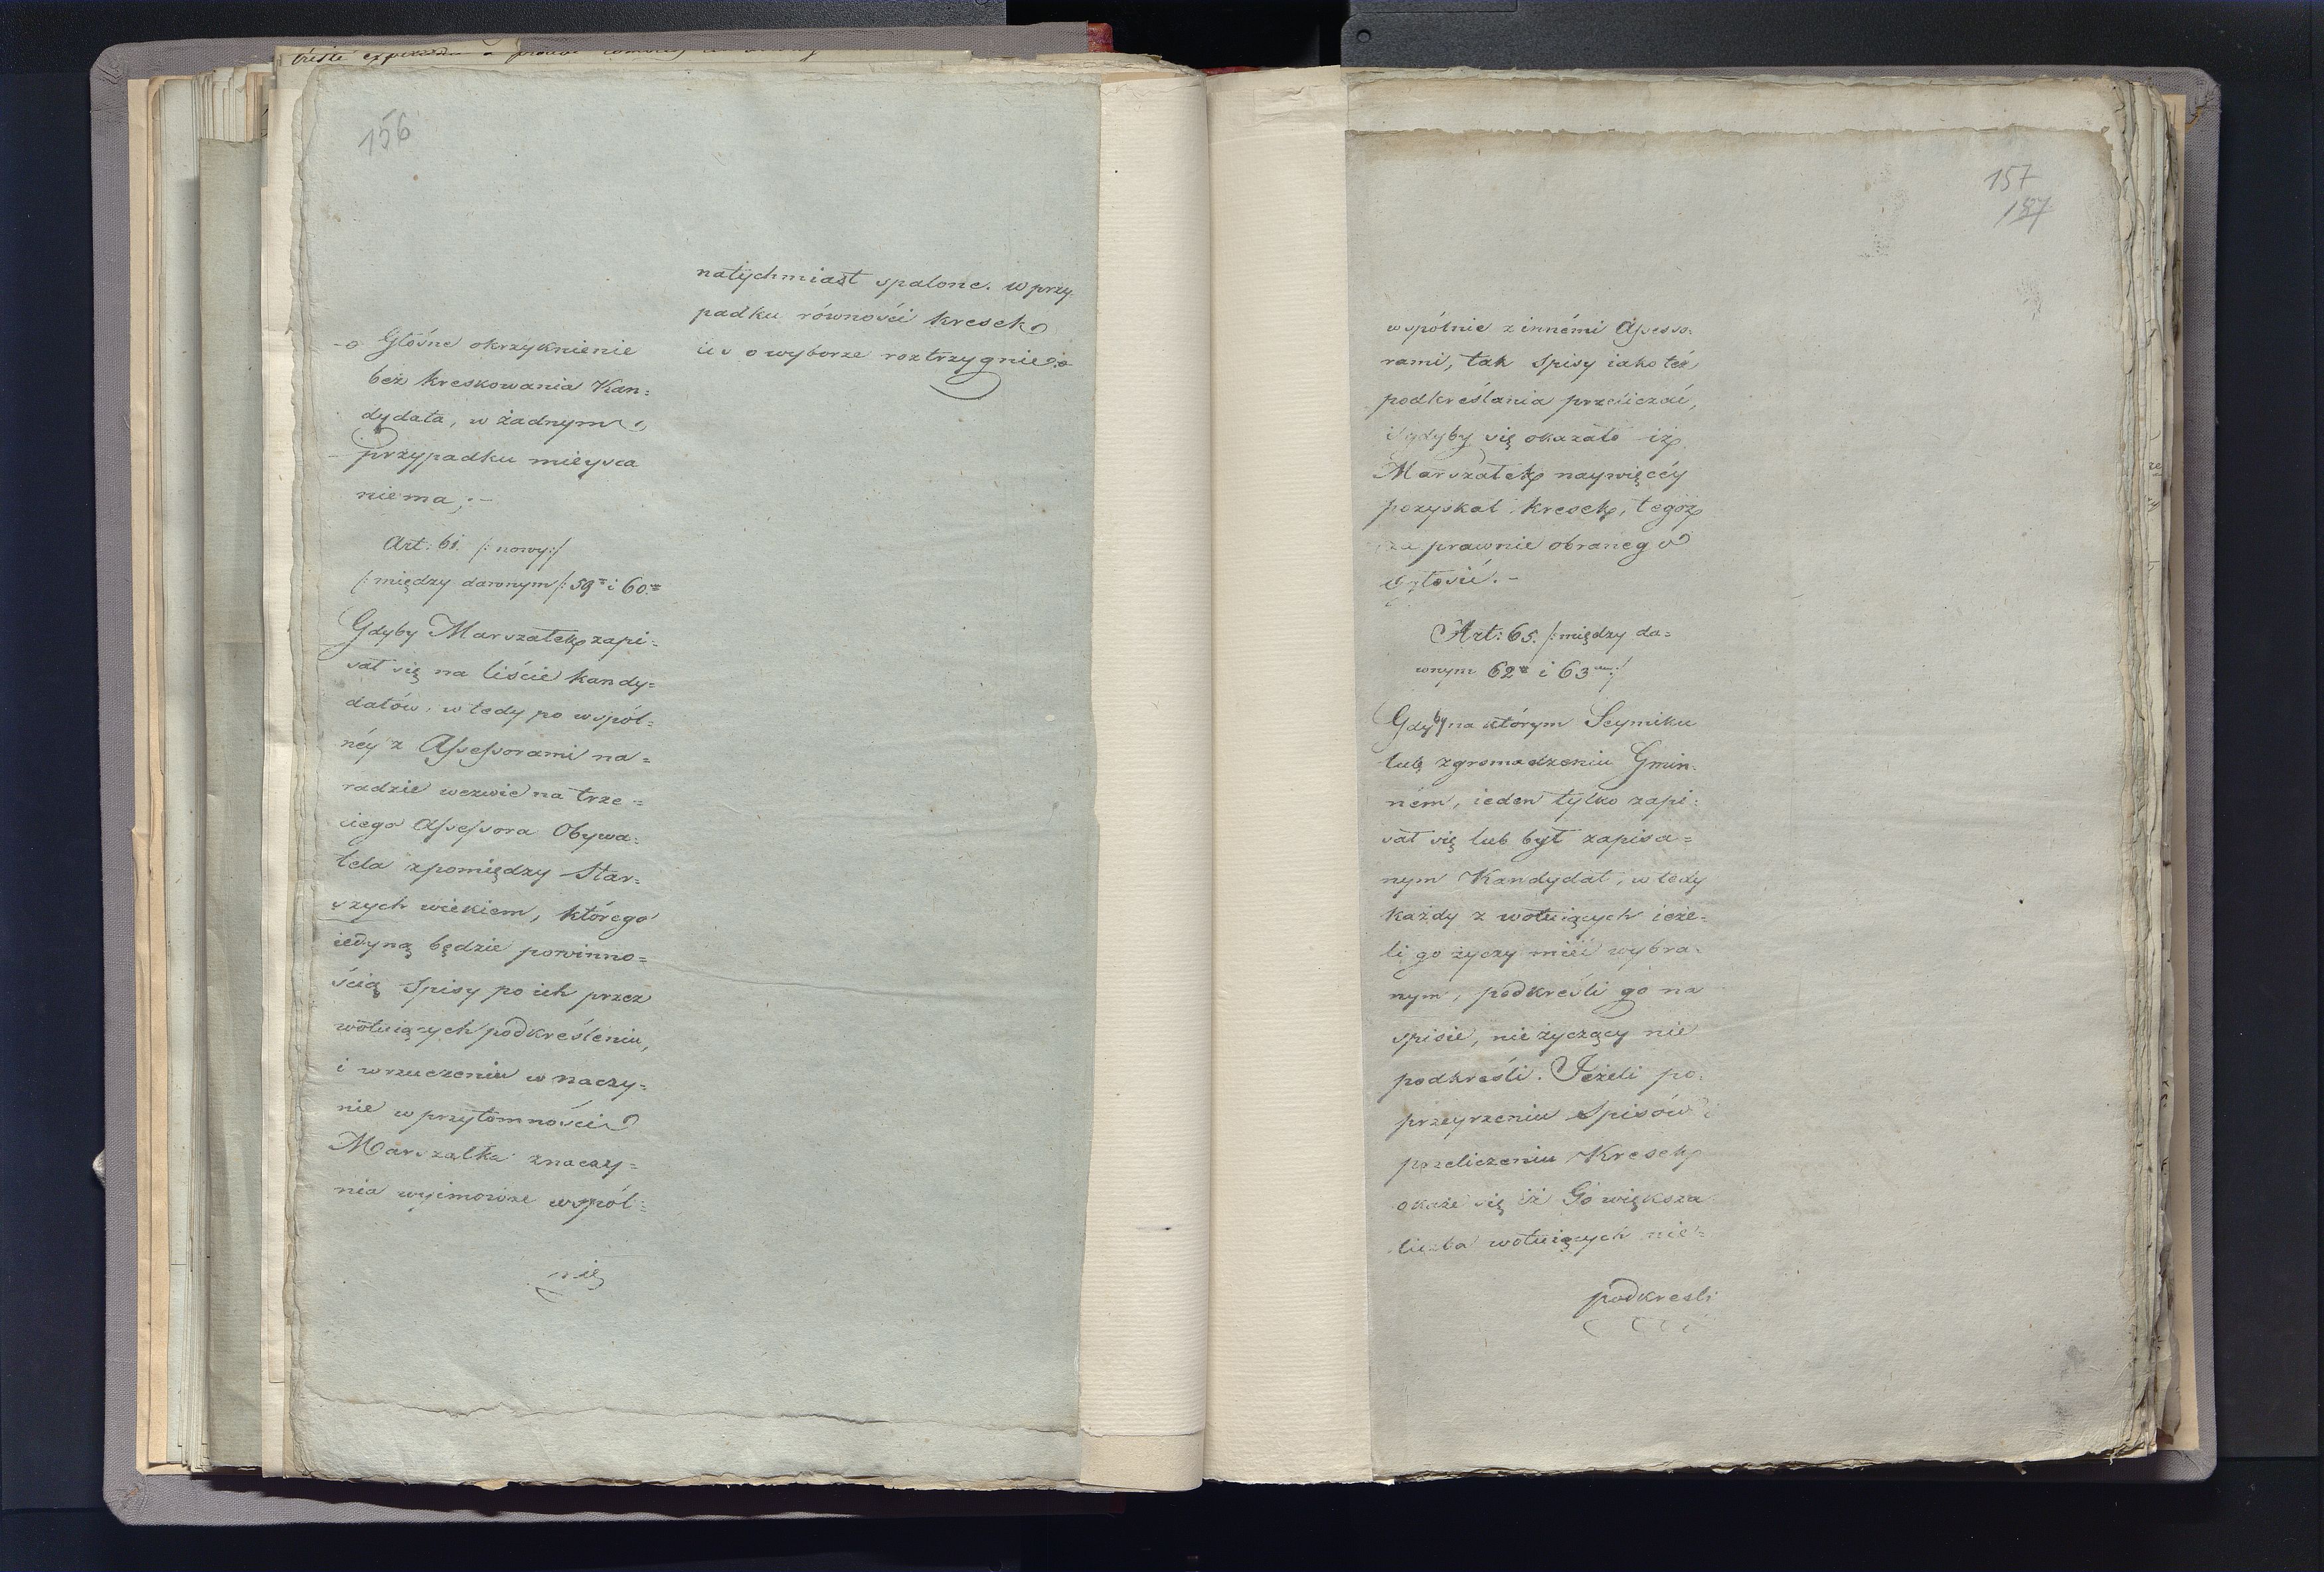 156
natychmiast spalone. w przy
padku równości kresek
los o wyborze roztrzygnie
Głośne okrzyknienie
bez kreskowania Kan=
dydata, w żadnym
przypadku mieysca
niema;-
Art: 61. /: nowy:/
/: między dawnym /: 59m i 60.m
Gdyby Marszałek zapi=
sał się na liście kandy=
datów, wtedy po wspól=
néy z Assessorami na=
radzie wezwie na trze=
ciego Assessora Obywa=
tela zpomiędzy Star=
szych wiekiem, którego
iedyną będzie powinno=
ścią Spisy po ich przez
wotuiących podkreśleniu,
i wrzuceniu w naczy=
nie w przytomności
Marszałka znaczy=
nia wyimować wspól=
nie
157
wspólnie z innémi Assesso=
rami, tak Spisy iako też
podkreślania przeliczać,
i gdyby się okazało iż
Marszałek naywięcéy
pozyskał kresek, tegoż
za prawnie obranego
ogłosić.-
Art: 65. /: między da=
wnym 62m i 63m:/
Gdyby na którym Seymiku
lub zgromadzeniu Gmin=
ném, ieden tylko zapi=
sał się lub był zapisa=
nym Kandydat, wtedy
każdy z wotuiących ieże=
li go życzy mieć wybra=
nym, podkreśli go na
spisie, nie życzący nie
podkreśli. Jeżeli po
przeyrzeniu Spisów i
przeliczeniu Kresek
okaże się iż Go większa
liczba wotuiących nie=
podkreśli